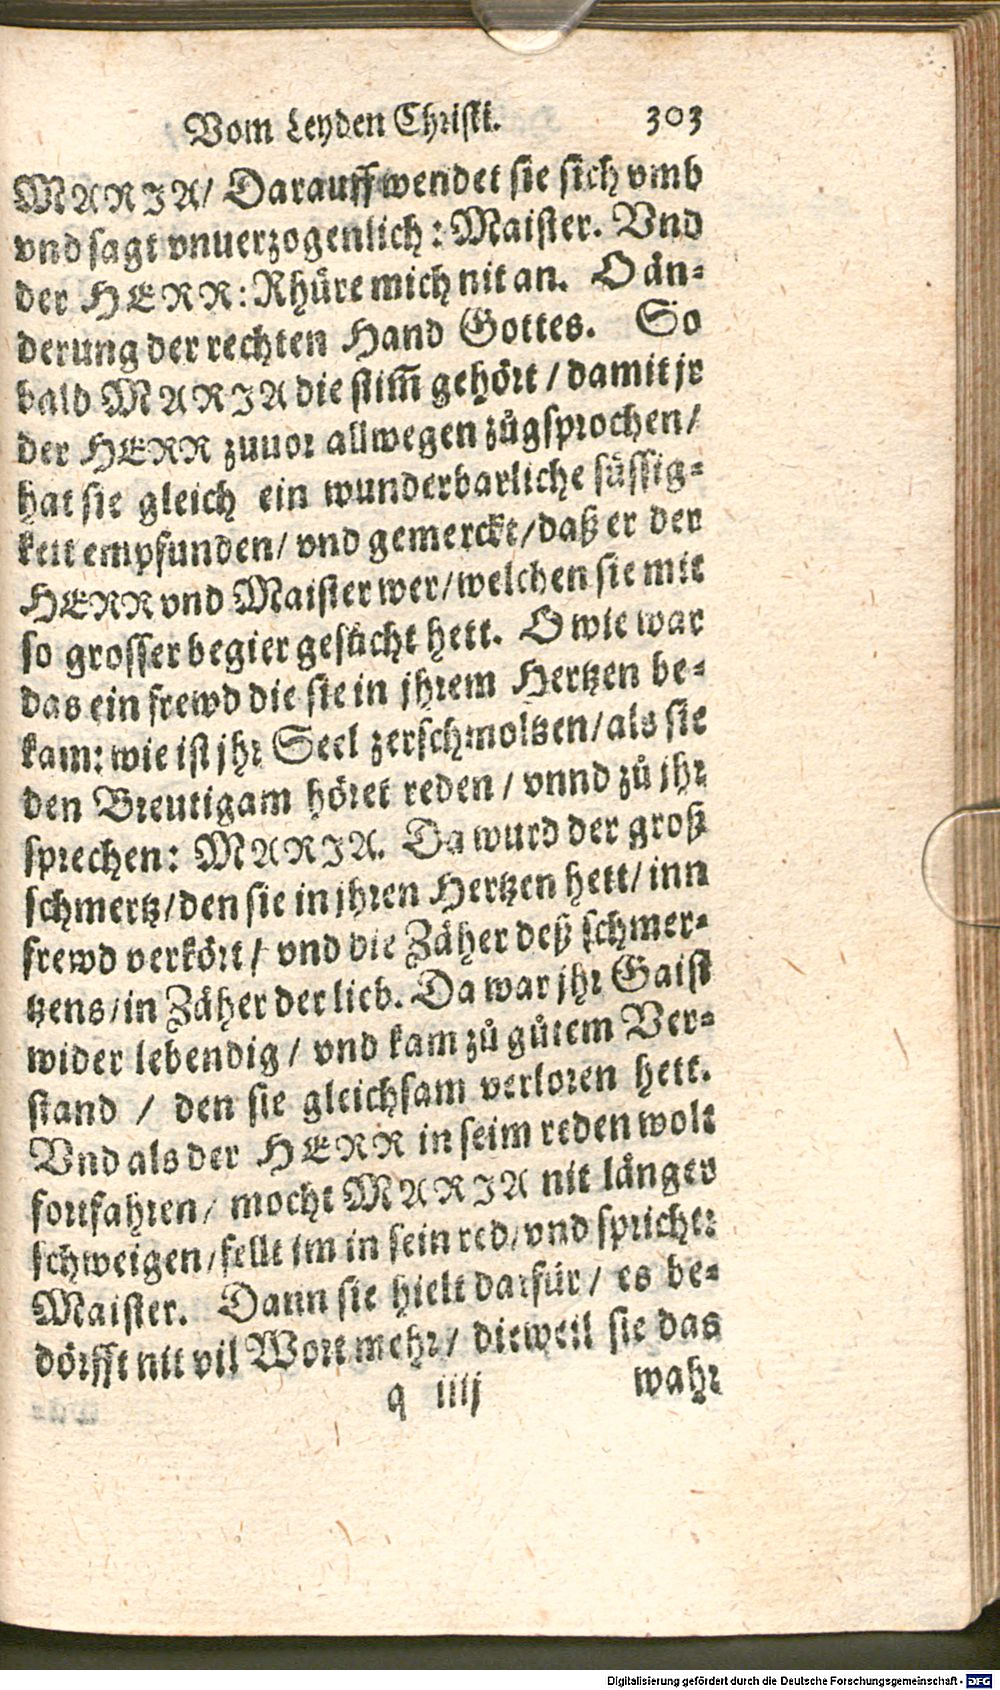 Vom Leyden Christi. 303
MARIA/ Darauff wendet sie sich vmb
vnd sagt vnuerzogenlich: Maister. Vnd
der HERR: Rhüre mich nit an. O än-
derung der rechten Hand Gottes. So
bald MARIA die stim̃ gehört / damit jr
der HERR zuuor allwegen zůgsprochen/
hat sie gleich ein wunderbarliche süssig-
keit empfunden/ vnd gemerckt/ daß er der
HERR vnd Maister wer/ welchen sie mit
so grosser begier gesůcht hett. O wie war
das ein frewd die sie in jhrem Hertzen be-
kam: wie ist jhr Seel zerschmoltzen/ als sie
den Breutigam höret reden / vnnd zů jhr
sprechen: MARIA. Da wurd der groß
schmertz/ den sie in jhren Hertzen hett/ inn
frewd verkört / vnd die Zäher deß schmer-
tzens/ in Zäher der lieb. Da war jhr Gaist
wider lebendig / vnd kam zů gůtem Ver-
stand / den sie gleichsam verloren hett.
Vnd als der HERR in seim reden wolt
fortfahren/ mocht MARIA nit länger
schweigen/ fellt im in sein red/ vnd spricht:
Maister. Dann sie hielt darfür / es be-
dörfft nit vil Wort mehr/ dieweil sie das
q iiij wahr
Digitalisierung gefördert durch die Deutsche Forschungsgemeinschaft - DFG